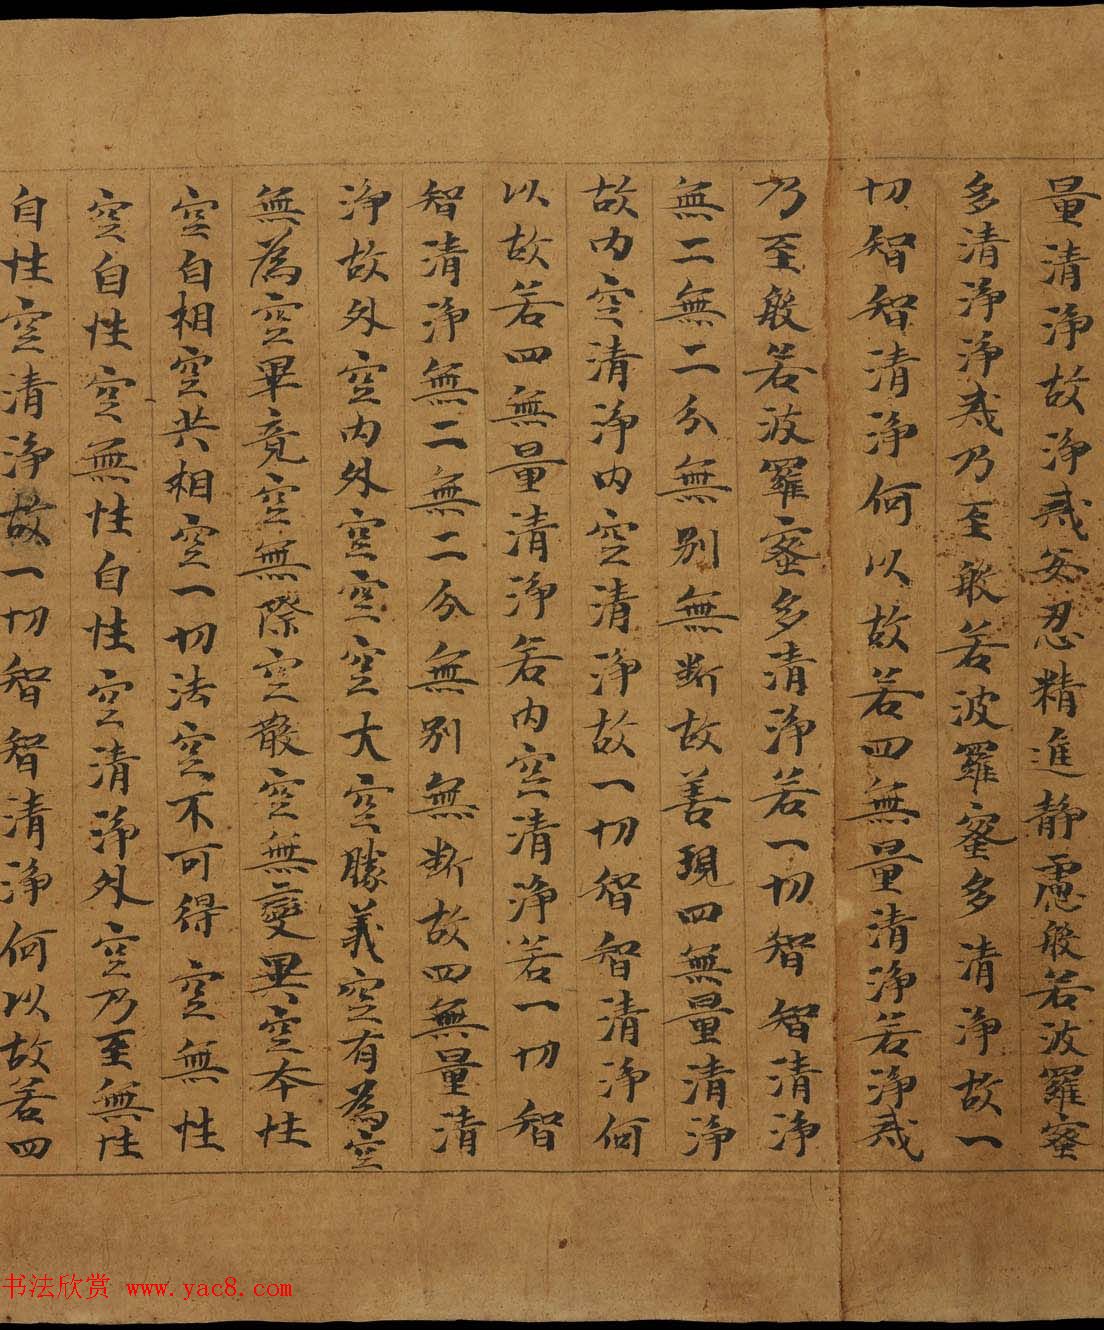 量清淨故淨戒安忍精進靜慮般若波羅蜜
多清淨淨戒乃至般若波羅蜜多清淨故一
切智智清淨何以故若四無量清淨若淨戒
乃至般若波羅蜜多清淨若一切智智清淨
無二無二分無別無斷故善現四無量清淨
故內空清淨內空清淨故一切智智清淨何
以故若四無量清淨若內空清淨若一切智
智清淨無二無二分無別無斷故四無量清
淨故外空內外空空空大空勝義空有為空
無為空畢竟空無際空散空無變異空本性
空自相空共相空一切法空不可得空無性
空自性空無性自性空清淨外空乃至無性
自性空清淨故一切智智清淨何以故若四
书法欣赏 www.yac8.com